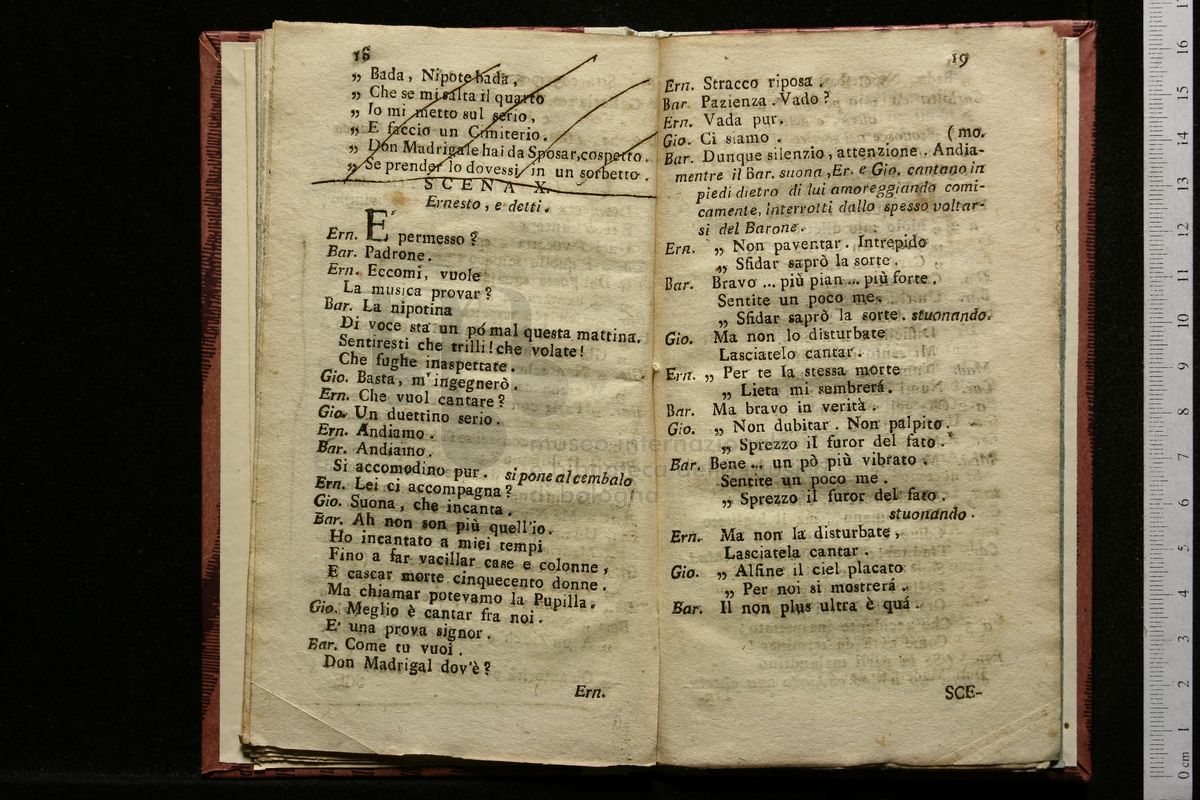 18
„ Bada, Nipote bada,
„ Che se mi salta il quarto
„ Io mi metto sul serio,
„ E faccio un Cimiterio.
„ Don Madrigale hai da Sposar, cospetto.
„ Se prender lo dovessi in un sorbetto.
SCENA X.
Ernesto, e detti.
Ern. E' permesso?
Bar. Padrone.
Ern. Eccomi, vuole
La musica provar?
Bar. La nipotina
Di voce sta un pó mal questa mattina.
Sentiresti che trilli! che volate!
Che fughe inaspettate.
Gio. Basta, m'ingegnerò.
Ern. Che vuol cantare?
Gio. Un duettino serio.
Ern. Andiamo.
Bar. Andiamo.
Si accomodino pur. si pone al cembalo
Ern. Lei ci accompagna?
Gio. Suona, che incanta.
Bar. Ah non son più quell'io.
Ho incantato a miei tempi
Fino a far vacillar case e colonne,
E cascar morte cinquecento donne.
Ma chiamar potevamo la Pupilla.
Gio. Meglio è cantar fra noi.
E' una prova signor.
Bar. Come tu vuoi.
Don Madrigal dov'è?
Ern.
19
Ern. Stracco riposa.
Bar. Pazienza. Vado?
Ern. Vada pur.
Gio. Ci siamo. (mo.
Bar. Dunque silenzio, attenzione. Andia-
mentre il Bar. suona, Er. e Gio. cantano in
piedi dietro di lui amoreggiando comi-
camente, interrotti dallo spesso voltar-
si del Barone.
Ern. „ Non paventar. Intrepido
„ Sfidar saprò la sorte.
Bar. Bravo ... più pian ... più forte.
Sentite un poco me.
„ Sfidar saprò la sorte. stuonando.
Gio. Ma non lo disturbate
Lasciatelo cantar.
Ern. „ Per te la stessa morte
„ Lieta mi sembrerá.
Bar. Ma bravo in verità.
Gio. „ Non dubitar. Non palpito.
„ Sprezzo il furor del fato.
Bar. Bene ... un pò più vibrato.
Sentite un poco me.
„ Sprezzo il furor del fato.
stuonando.
Ern. Ma non la disturbate,
Lasciatela cantar.
Gio. „ Alfine il ciel placato
„ Per noi si mostrerá.
Bar. Il non plus ultra è quá.
SCE-
museo internazio
bibliotec
di bologna
0 cm 1 2 3 4 5 6 7 8 9 10 11 12 13 14 15 16 17